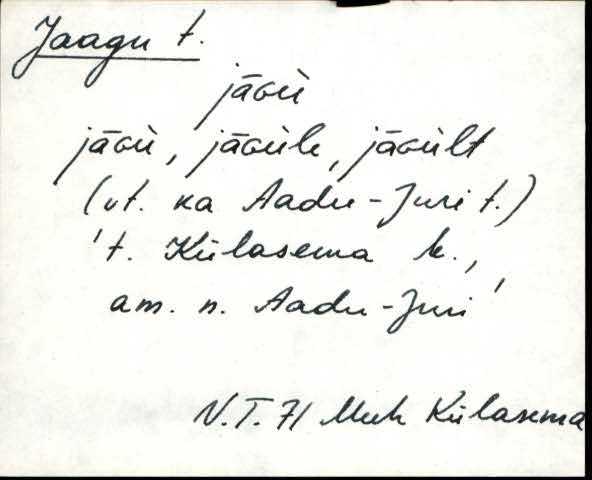 Jaagu t.
jāɢù
jāɢù, jāɢùle, jāɢùlt
(vt. ka Aadu-Juri t.)
't. Külasema k.,
am. n. Aadu-Juri'
N.T. 71 Muh Külasema